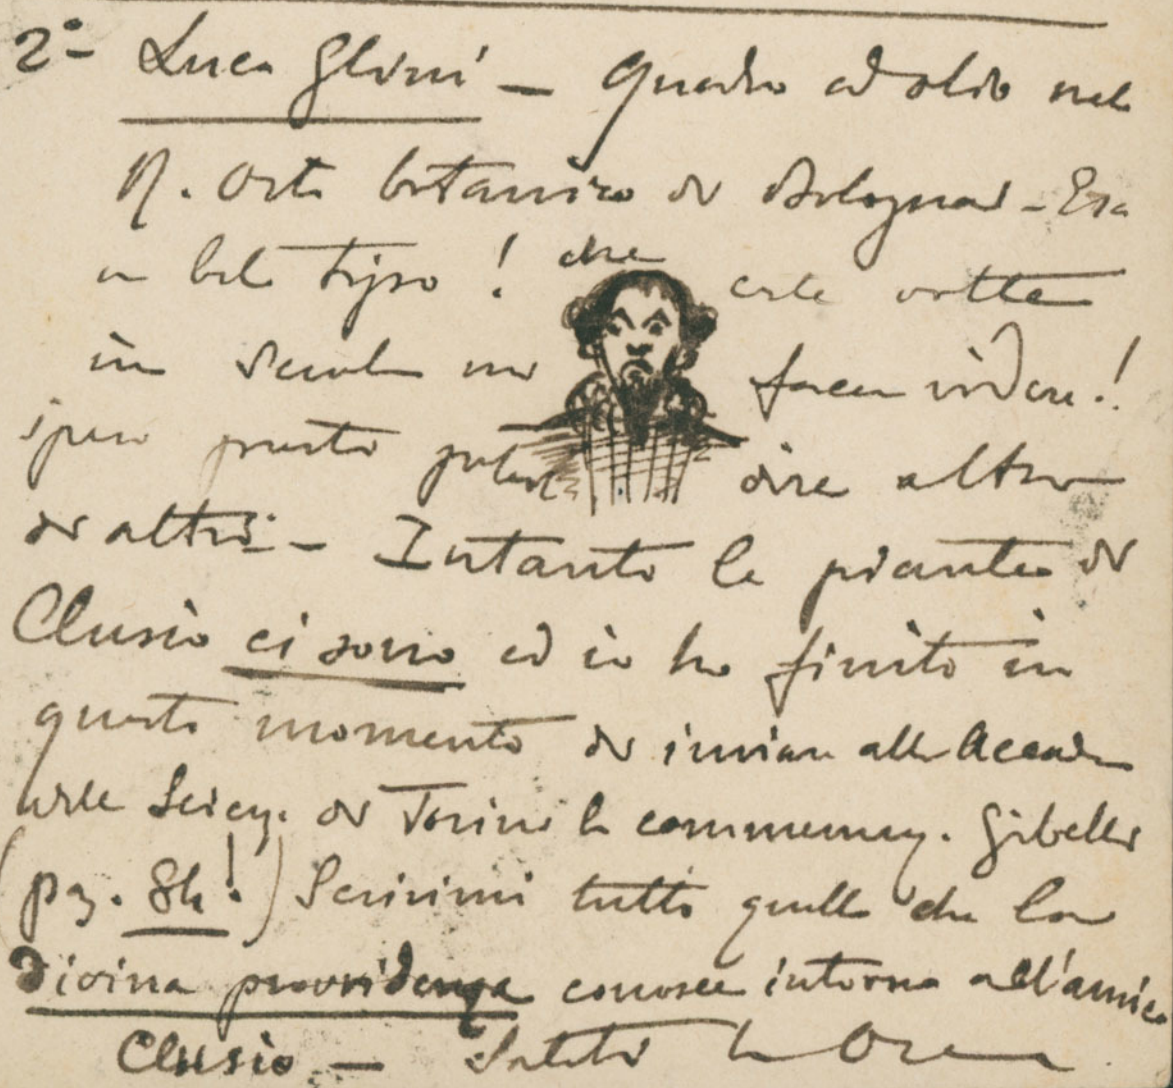 2º - Luca Ghini - Quadro ad olio nel
R. Orto botanico di Bologna - Era
un bel tipo! che certe volte
in scuola mi facea ridere!
spero presto poter dire altro
di altri - Intanto le piante di
Clusio ci sono ed io ho finito in
questo momento di inviare alla Accad
delle Scienz. di Torino la commemoraz. Gibelli
(pag. 84!) Scrivimi tutto quello che la
divina provvidenza conosce intorno all'amico
Clusio - Saluti